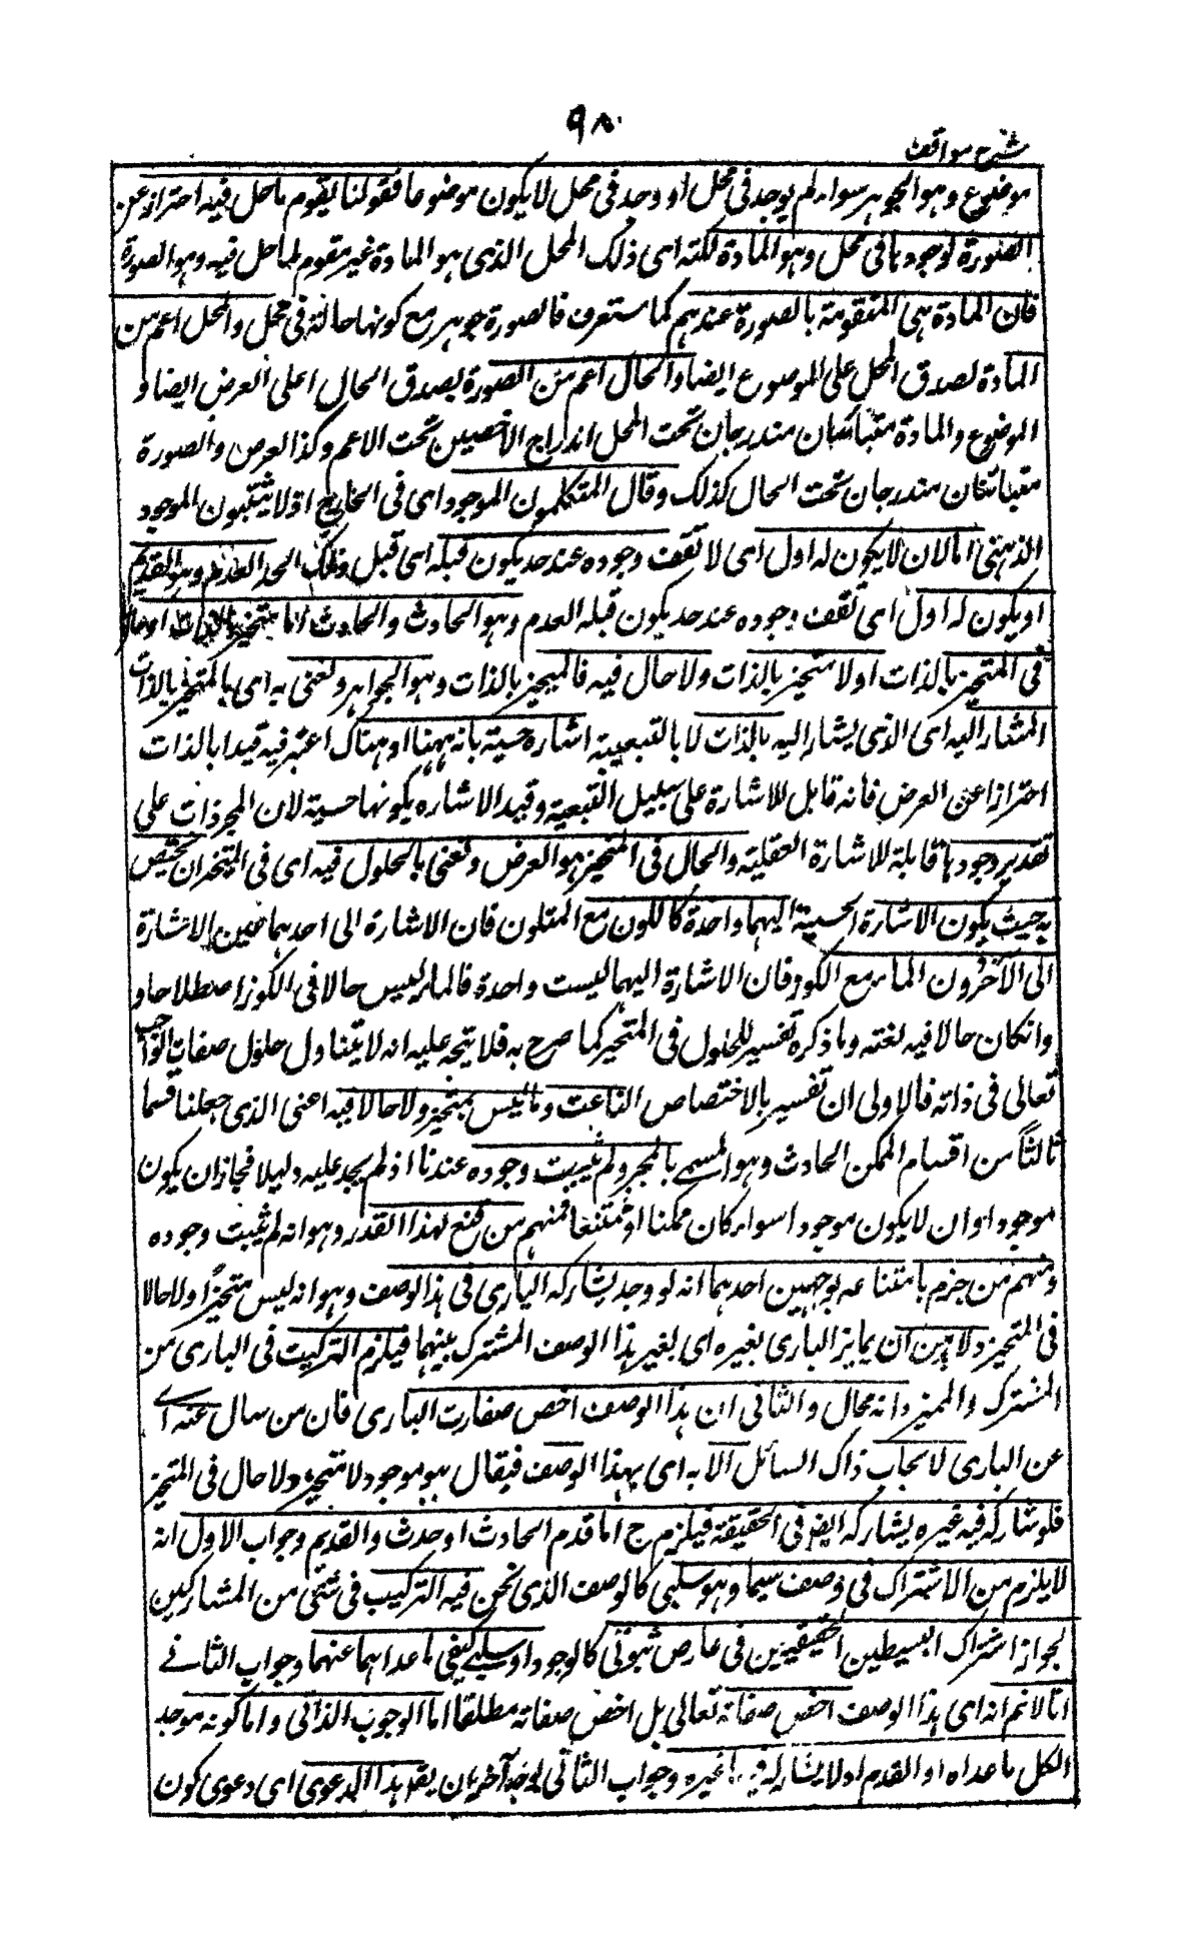 ٩٨
شرح مواقف
موضوع وهو الجوهر سواء لم يوجد في محل او وجد في محل لا يكون موضوعا فقولنا يقوم ما حل فيه احتراز عن
الصورة لوجودها في محل وهو المادة لكنه اى ذلك المحل الذى هو المادة غير مقوم لما حل فيه وهو الصورة
فان المادة هى المتقومة بالصورة عندهم كما ستعرف فالصورة جوهر مع كونها حالة في محل والمحل اعم من
المادة لصدق المحل على الموضوع ايضا والحال اعم من الصورة لصدق الحال على العرض ايضا و
الموضوع والمادة متباينان مندرجان تحت المحل اندراج الاخصين تحت الاعم وكذا العرض والصورة
متباينان مندرجان تحت الحال كذلك وقال المتكلمون الموجود اى في الخارج اذ لا يثبتون الموجود
الذهنى اما ان لا يكون له اول اى لا تقف وجوده عند حد يكون قبله اى قبل ذلك الحد العدم وهو القديم
او يكون له اول اى تقف وجوده عند حد يكون قبله العدم وهو الحادث والحادث اما متحيز بالذات او حال
في المتحيز بالذات او لا متحيز بالذات ولا حال فيه فالمتحيز بالذات وهو الجواهر ونعنى به اى بالمتحيز بالذات
المشار اليه اى الذى يشار اليه بالذات لا بالتبعية اشارة حسية بانه ههنا او هناك اعتبر فيه قيدا بالذات
احترازا عن العرض فانه قابل للاشارة على سبيل التبعية وقيد الاشاره بكونها حسية لان المجردات على
تقدير وجودها قابلة للاشارة العقلية والحال في المتحيز هو العرض ونعنى بالحلول فيه اى في المتحيز ان يختص
به بحيث يكون الاشارة الحسية اليهما واحدة كاللون مع المتلون فان الاشارة الى احدهما عين الاشارة
الى الآخر دون الماء مع الكوز فان الاشارة اليهما ليست واحدة فالماء ليس حالا في الكوز اصطلاحا و
وانكان حالا فيه لغته وما ذكره تفسير للحلول في المتحيز كما صرح به فلا يتجه عليه انه لا يتناول حلول صفات الواجب
تعالى في ذاته فالاولى ان تفسير بالاختصاص الناعت وما ليس بمتحيز ولا حالا فيه اعنى الذى جعلنا قسما
ثالثا من اقسام الممكن الحادث وهو المسمى بالمجرد لم يثبت وجوده عندنا اذ لم يجد عليه دليلا فجاز ان يكون
موجودا وان لا يكون موجودا سواء كان ممكنا او ممتنعا فمنهم من قنع لهذا القدر وهو انه لم يثبت وجوده
ومنهم من جزم بامتناعه لوجهين احدهما انه لو وجد يشاركه البارى في هذا الوصف وهو انه ليس متحيزا ولا حالا
في المتحيز ولا بد من ان يمايز البارى بغيره اى بغير هذا الوصف المشترك بينهما فيلزم التركيب في البارى من
المشترك والمميز وانه محال والثانى ان هذا الوصف اخص صفات البارى فان من سال عنه اى
عن البارى لا يجاب ذاك السائل الا به اى بهذا الوصف فيقال هو موجود لا متحيز ولا حال في المتحيز
فلو شاركه فيه غيره يشاركه ايضا في الحقيقة فيلزم ح اما قدم الحادث او حدث والقديم وجواب الاول انه
لا يلزم من الاشتراك في وصف سيما وهو سلبى كالوصف الذى نحن فيه التركيب في شئ من المشاركين
لجواز اشتراك البسيطين الحقيقيين في عارض ثبوتى كالوجود او سلبى كنفى ما عداهما عنهما وجواب الثانى
انا لا نم انه اى هذا الوصف اخص صفاته تعالى بل اخص صفاته مطلقا اما الوجوب الذاتى واما كونه موجد
الكل ما عداه او القدم اذ لا يشاركه فيها غيره وجواب الثانى لوجه آخر بان يقر هذا الدعوى اى دعوى كون